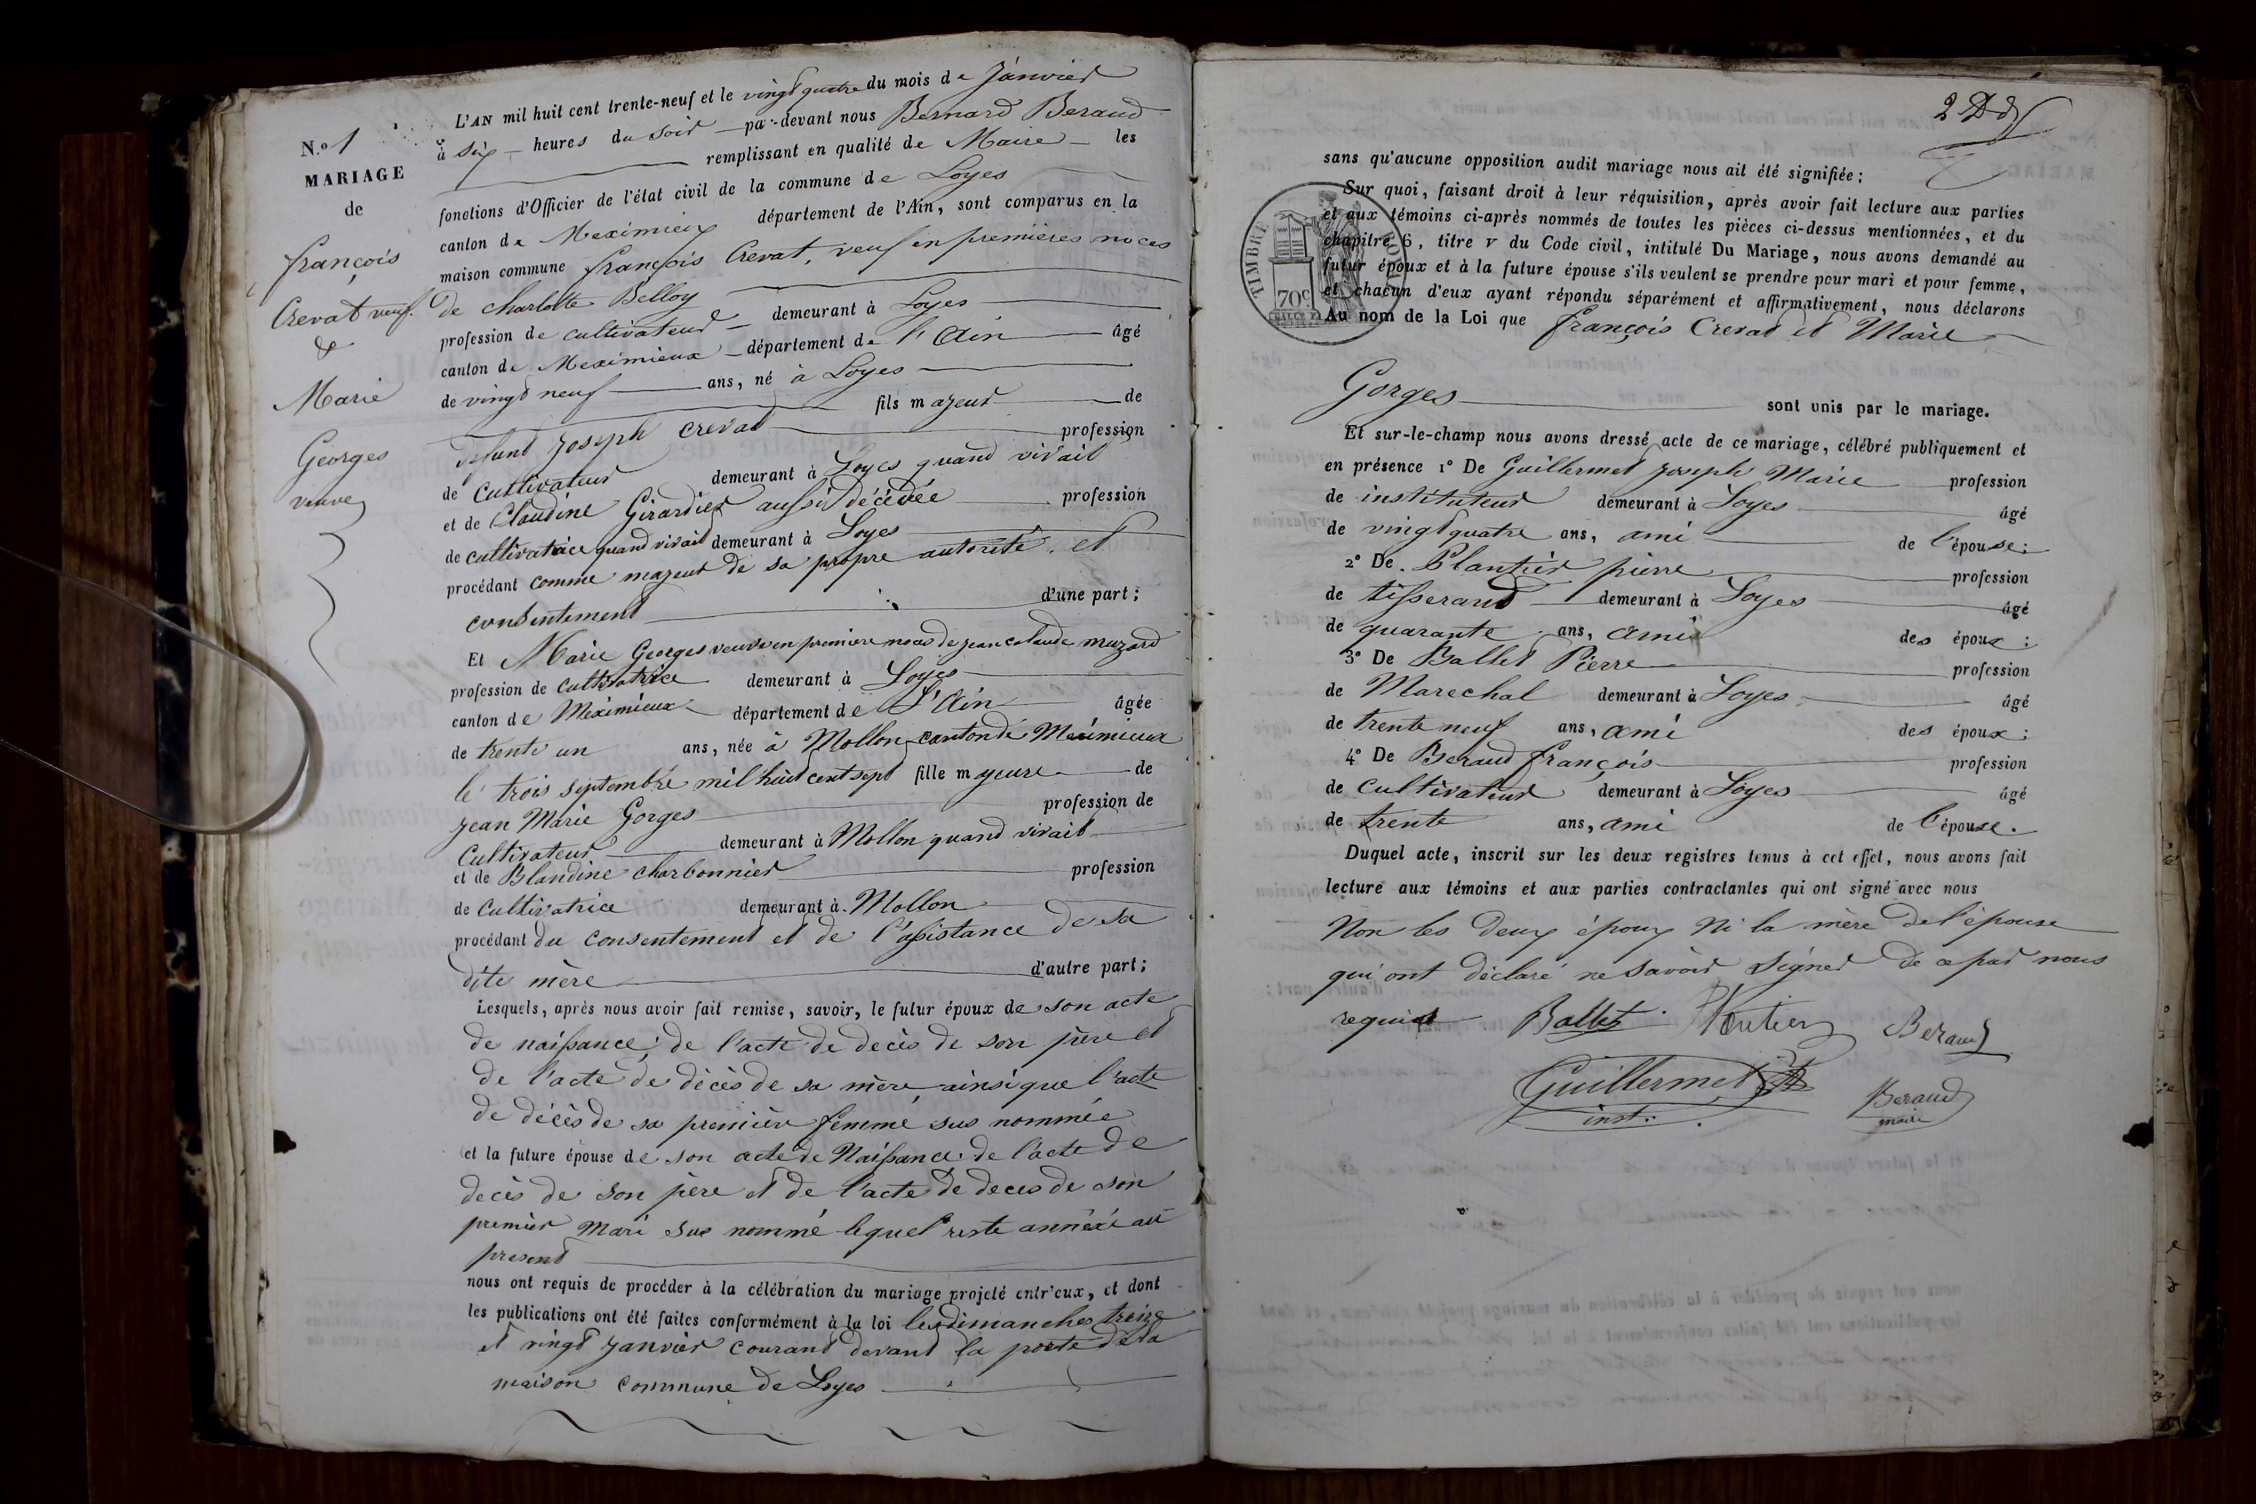 N.o 1
MARIAGE
de
françois
Crevat veuf.
&
Marie
Georges
veuve
L'AN mil huit cent trente-neuf et le vingt quatre du mois de Janvier
à six heures du soir par-devant nous Bernard Beraud
remplissant en qualité de Maire les
fonctions d'Officier de l'état civil de la commune de Loyes
canton de Meximieux département de l'Ain, sont comparus en la
maison commune françois Crevat, veuf en premières noces
de charlotte Belloy
profession de cultivateur demeurant à Loyes
canton de Meximieux département de l'Ain âgé
de vingt neuf ans, né à Loyes
fils majeur de
defunt Joseph Crevat profession
de Cultivateur demeurant à Loyes quand vivait
et de Claudine Girardier aussi décédée profession
de cultivatrice quand vivait demeurant à Loyes
procédant comme majeur de sa propre autorité et
consentement d'une part;
Et Marie Georges veuve en premiere noces de jean claude muzard
profession de cultivatrice demeurant à Loyes
canton de Meximieux département de l'Ain âgée
de trente un ans, née à Mollon canton de Meximieux
le trois septembre mil huit cent sept fille majeure de
Jean Marie Gorges profession de
Cultivateur demeurant à Mollon quand vivait
et de Blandine charbonnier profession
de Cultivatrice demeurant à Mollon
procédant du consentement et de l'assistance de sa
dite mère d'autre part;
Lesquels, après nous avoir fait remise, savoir, le futur époux de son acte
de naissance, de l'acte de decès de son père et
de l'acte de décès de sa mère ainsi que l'acte
de décès de sa première femme sus nommée
et la future épouse de son acte de Naissance de l'acte de
decès de son père et de l'acte de deces de son
premier mari sus nommé lequel reste annéxé au
present
nous ont requis de procéder à la célébration du mariage projeté entr'eux, et dont
les publications ont été faites conformément à la loi les dimanches treize
et vingt janvier courant devant la porte de la
maison commune de Loyes
2
sans qu'aucune opposition audit mariage nous ait été signifiée;
Sur quoi, faisant droit à leur réquisition, après avoir fait lecture aux parties
et aux témoins ci-après nommés de toutes les pièces ci-dessus mentionnées, et du
chapitre 6, titre v du Code civil, intitulé Du Mariage, nous avons demandé au
futur époux et à la future épouse s'ils veulent se prendre pour mari et pour femme,
et chacun d'eux ayant répondu séparément et affirmativement, nous déclarons
Au nom de la Loi que françois Crevat et Marie
TIMBRE ROYAL
70c
Gorges sont unis par le mariage.
Et sur-le-champ nous avons dressé acte de ce mariage, célébré publiquement et
en présence 1° De Guillermet Joseph Marie profession
de instituteur demeurant à Loyes âgé
de vingt quatre ans, ami de l'épouse;
2° De Plantier pierre profession
de tisserand demeurant à Loyes âgé
de quarante ans, ami des époux;
3° De Ballet Pierre profession
de Marechal demeurant à Loyes âgé
de trente neuf ans, ami des époux;
4° De Beraud françois profession
de cultivateur demeurant à Loyes âgé
de trente ans, ami de l'épouse.
Duquel acte, inscrit sur les deux registres tenus à cet effet, nous avons fait
lecture aux témoins et aux parties contractantes qui ont signé avec nous
Non les deux époux Ni la mère de l'épouse
qui ont déclaré ne savoir signer de ce par nous
requis
Ballet Plantier Beraud
Guillermet
inst:
Beraud
maire